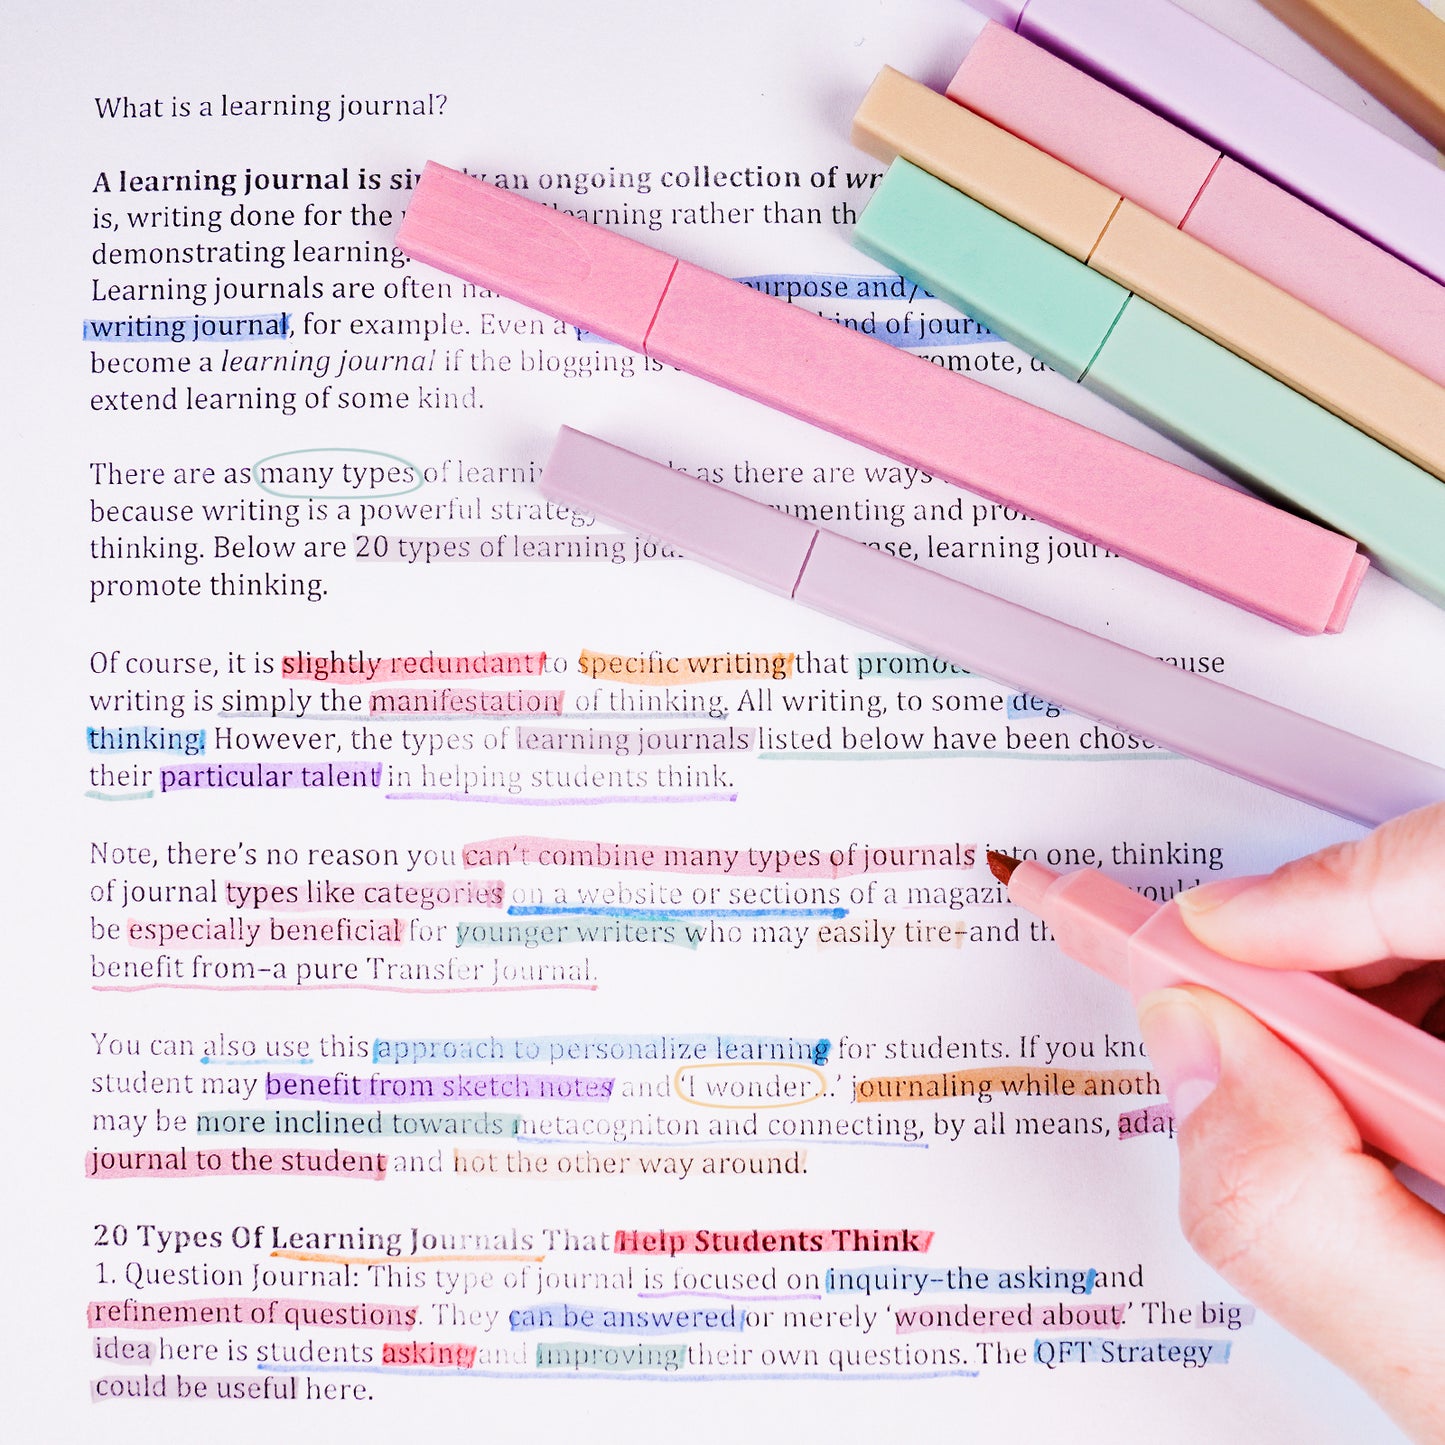 What is a learning journal?
A learning journal is simply an ongoing collection of
is, writing done for the learning rather than
demonstrating learning.
Learning journals are often purpose and/
writing journal, for example. Even a kind of
become a learning journal if the blogging is
extend learning of some kind.
There are as many types of as there are ways
because writing is a powerful strategy and
thinking. Below are 20 types of learning learning
promote thinking.
Of course, it is slightly redundant to specific writing that
writing is simply the manifestation of thinking. All writing, to some
thinking. However, the types of learning journals listed below have been
their particular talent in helping students think.
Note, there's no reason you can't combine many types of journals into one, thinking
of journal types like categories on a website or sections of a
be especially beneficial for younger writers who may easily tire–and
benefit from–a pure Transfer Journal.
You can also use this approach to personalize learning for students. If you
student may benefit from sketch notes and 'I wonder...' journaling while
may be more inclined towards metacogniton and connecting, by all means,
journal to the student and not the other way around.
20 Types Of Learning Journals That Help Students Think
1. Question Journal: This type of journal is focused on inquiry–the asking and
refinement of questions. They can be answered or merely 'wondered about.' The big
idea here is students asking and improving their own questions. The QFT Strategy
could be useful here.